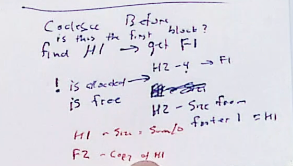 Coalesce Before
is this the first block?
find H1 → get F1
H2 - 4 → F1
! is allocated →
is free H2 - Size from
footer 1 = H1
H1 - Size = Sum/0
F2 - Copy of H1